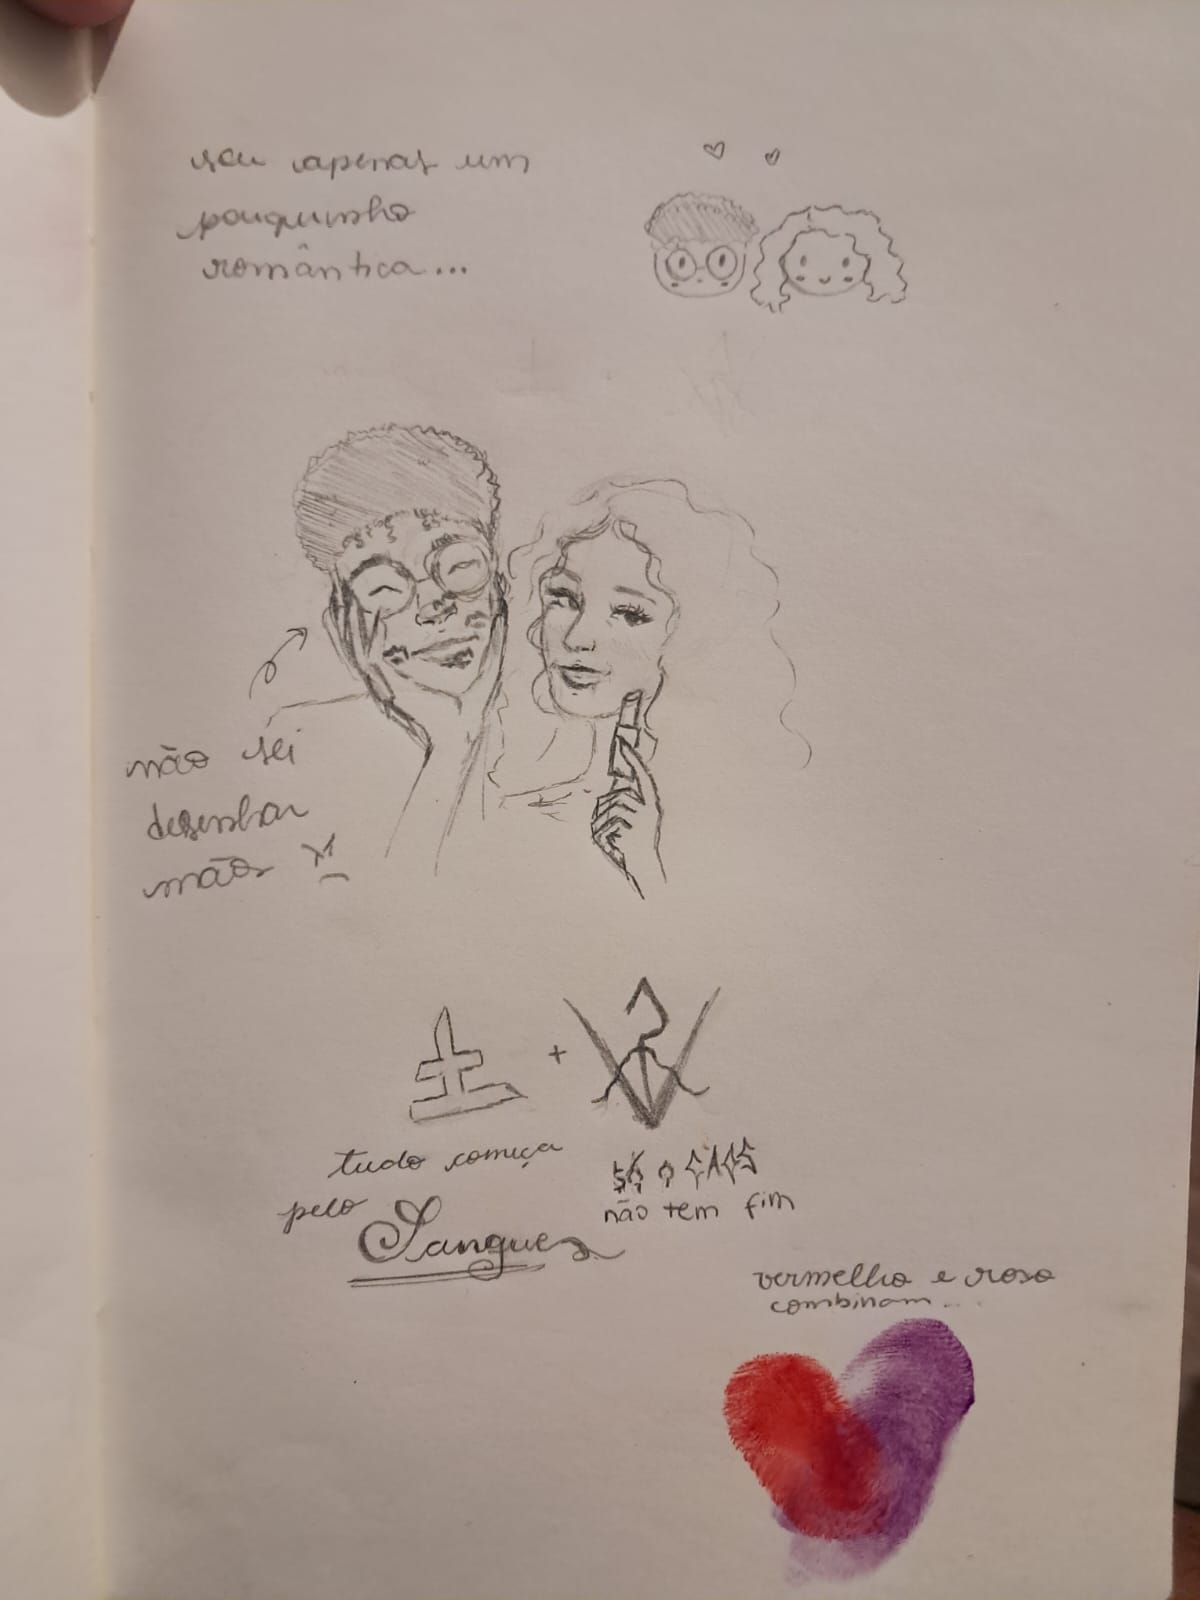 sou apenas um
pouquinho
romântica...
não sei
desenhar
mãos
+
tudo começa
pelo
Sangue
só o CAOS
não tem fim
vermelho e roxo
combinam...